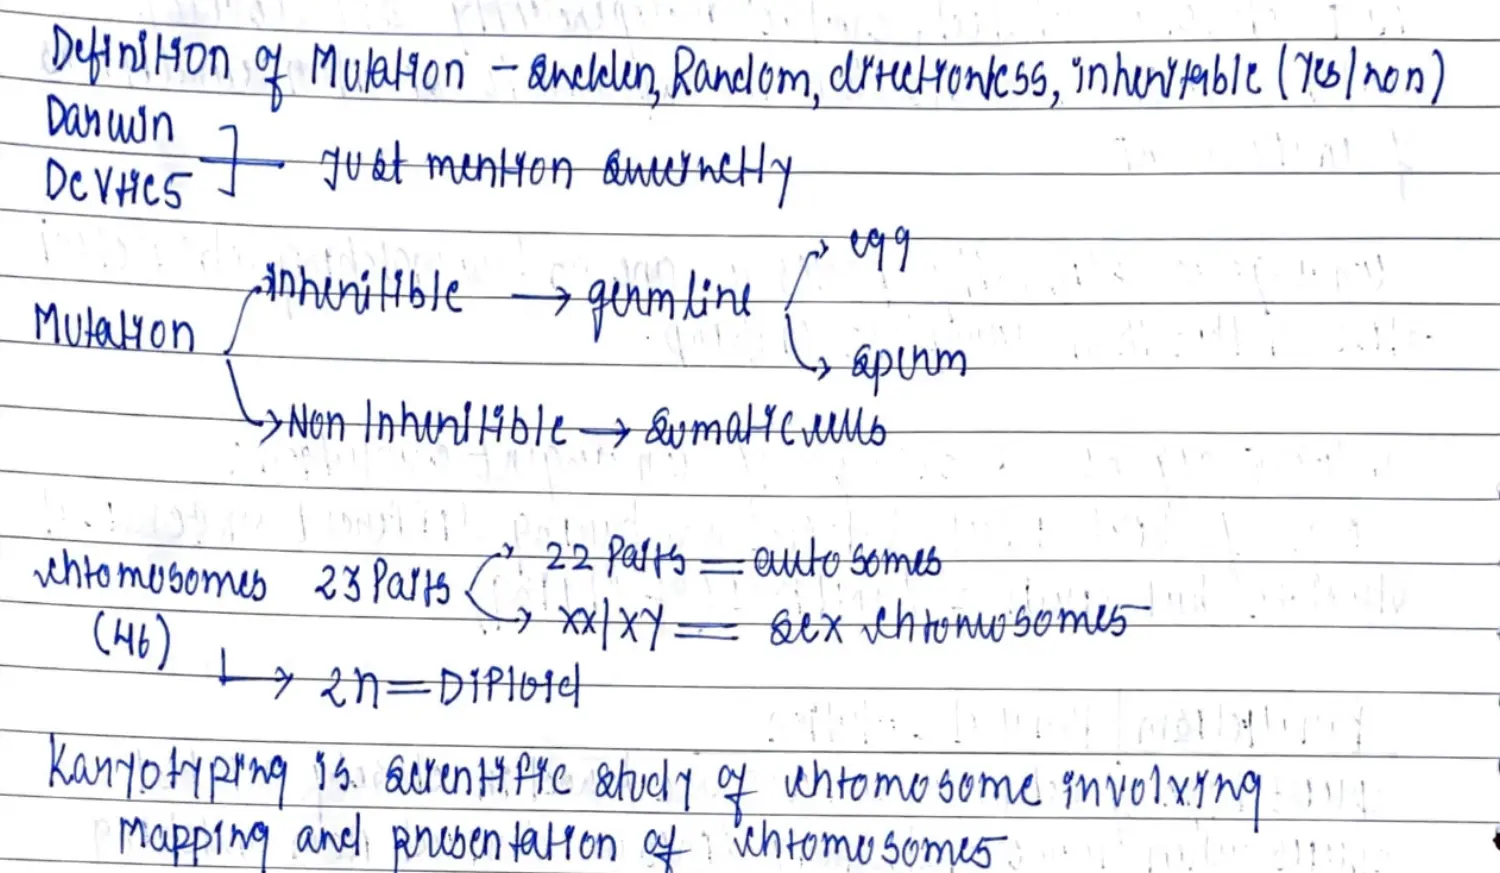 Definition of Mutation - sudden, Random, directionless, inheritable (Yes/non)
Darwin
DeVries
Just mention succinctly
egg
Inheritible → germline
Mutation
sperm
Non Inheritible → somatic cells
22 Pairs = autosomes
chromosomes 23 Pairs
xx/xy = sex chromosomes
(46)
2n = Diploid
Karyotyping is scientific study of chromosome involving
Mapping and presentation of chromosomes